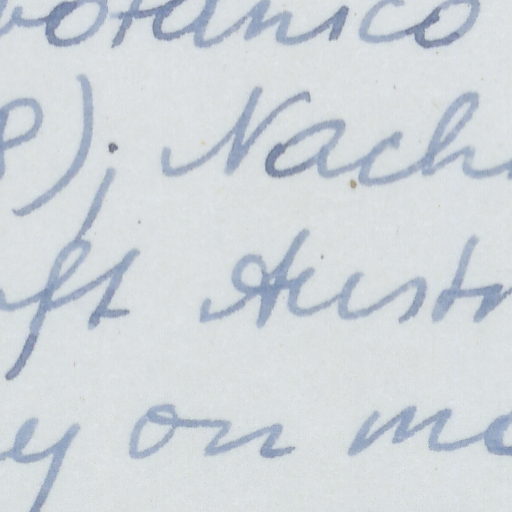 botanico
8); Nach
ft Austr
y on mo